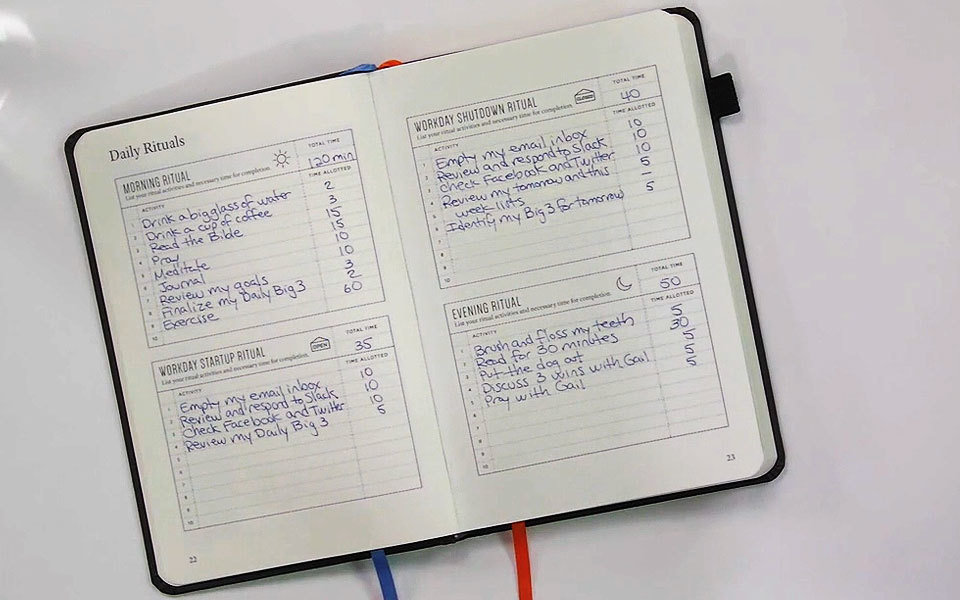 Daily Rituals
MORNING RITUAL
List your ritual activities and necessary time for completion.
TOTAL TIME
120 min
ACTIVITY
TIME ALLOTTED
1 Drink a big glass of water 2
2 Drink a cup of coffee 3
3 Read the Bible 15
4 Pray 15
5 Meditate 10
6 Journal 10
7 Review my goals 3
8 Finalize my Daily Big 3 2
9 Exercise 60
10
WORKDAY STARTUP RITUAL
List your ritual activities and necessary time for completion.
OPEN
TOTAL TIME
35
ACTIVITY
TIME ALLOTTED
1 Empty my email inbox 10
2 Review and respond to Slack 10
3 Check Facebook and Twitter 10
4 Review my Daily Big 3 5
5
6
7
8
9
10
22
WORKDAY SHUTDOWN RITUAL
List your ritual activities and necessary time for completion.
CLOSED
TOTAL TIME
40
ACTIVITY
TIME ALLOTTED
1 Empty my email inbox 10
2 Review and respond to Slack 10
3 Check Facebook and Twitter 10
4 Review my tomorrow and this 5
5 week lists —
6 Identify my Big 3 for tomorrow 5
7
8
9
10
EVENING RITUAL
List your ritual activities and necessary time for completion.
TOTAL TIME
50
ACTIVITY
TIME ALLOTTED
1 Brush and floss my teeth 5
2 Read for 30 minutes 30
3 Put the dog out 5
4 Discuss 3 wins with Gail 5
5 Pray with Gail 5
6
7
8
9
10
23